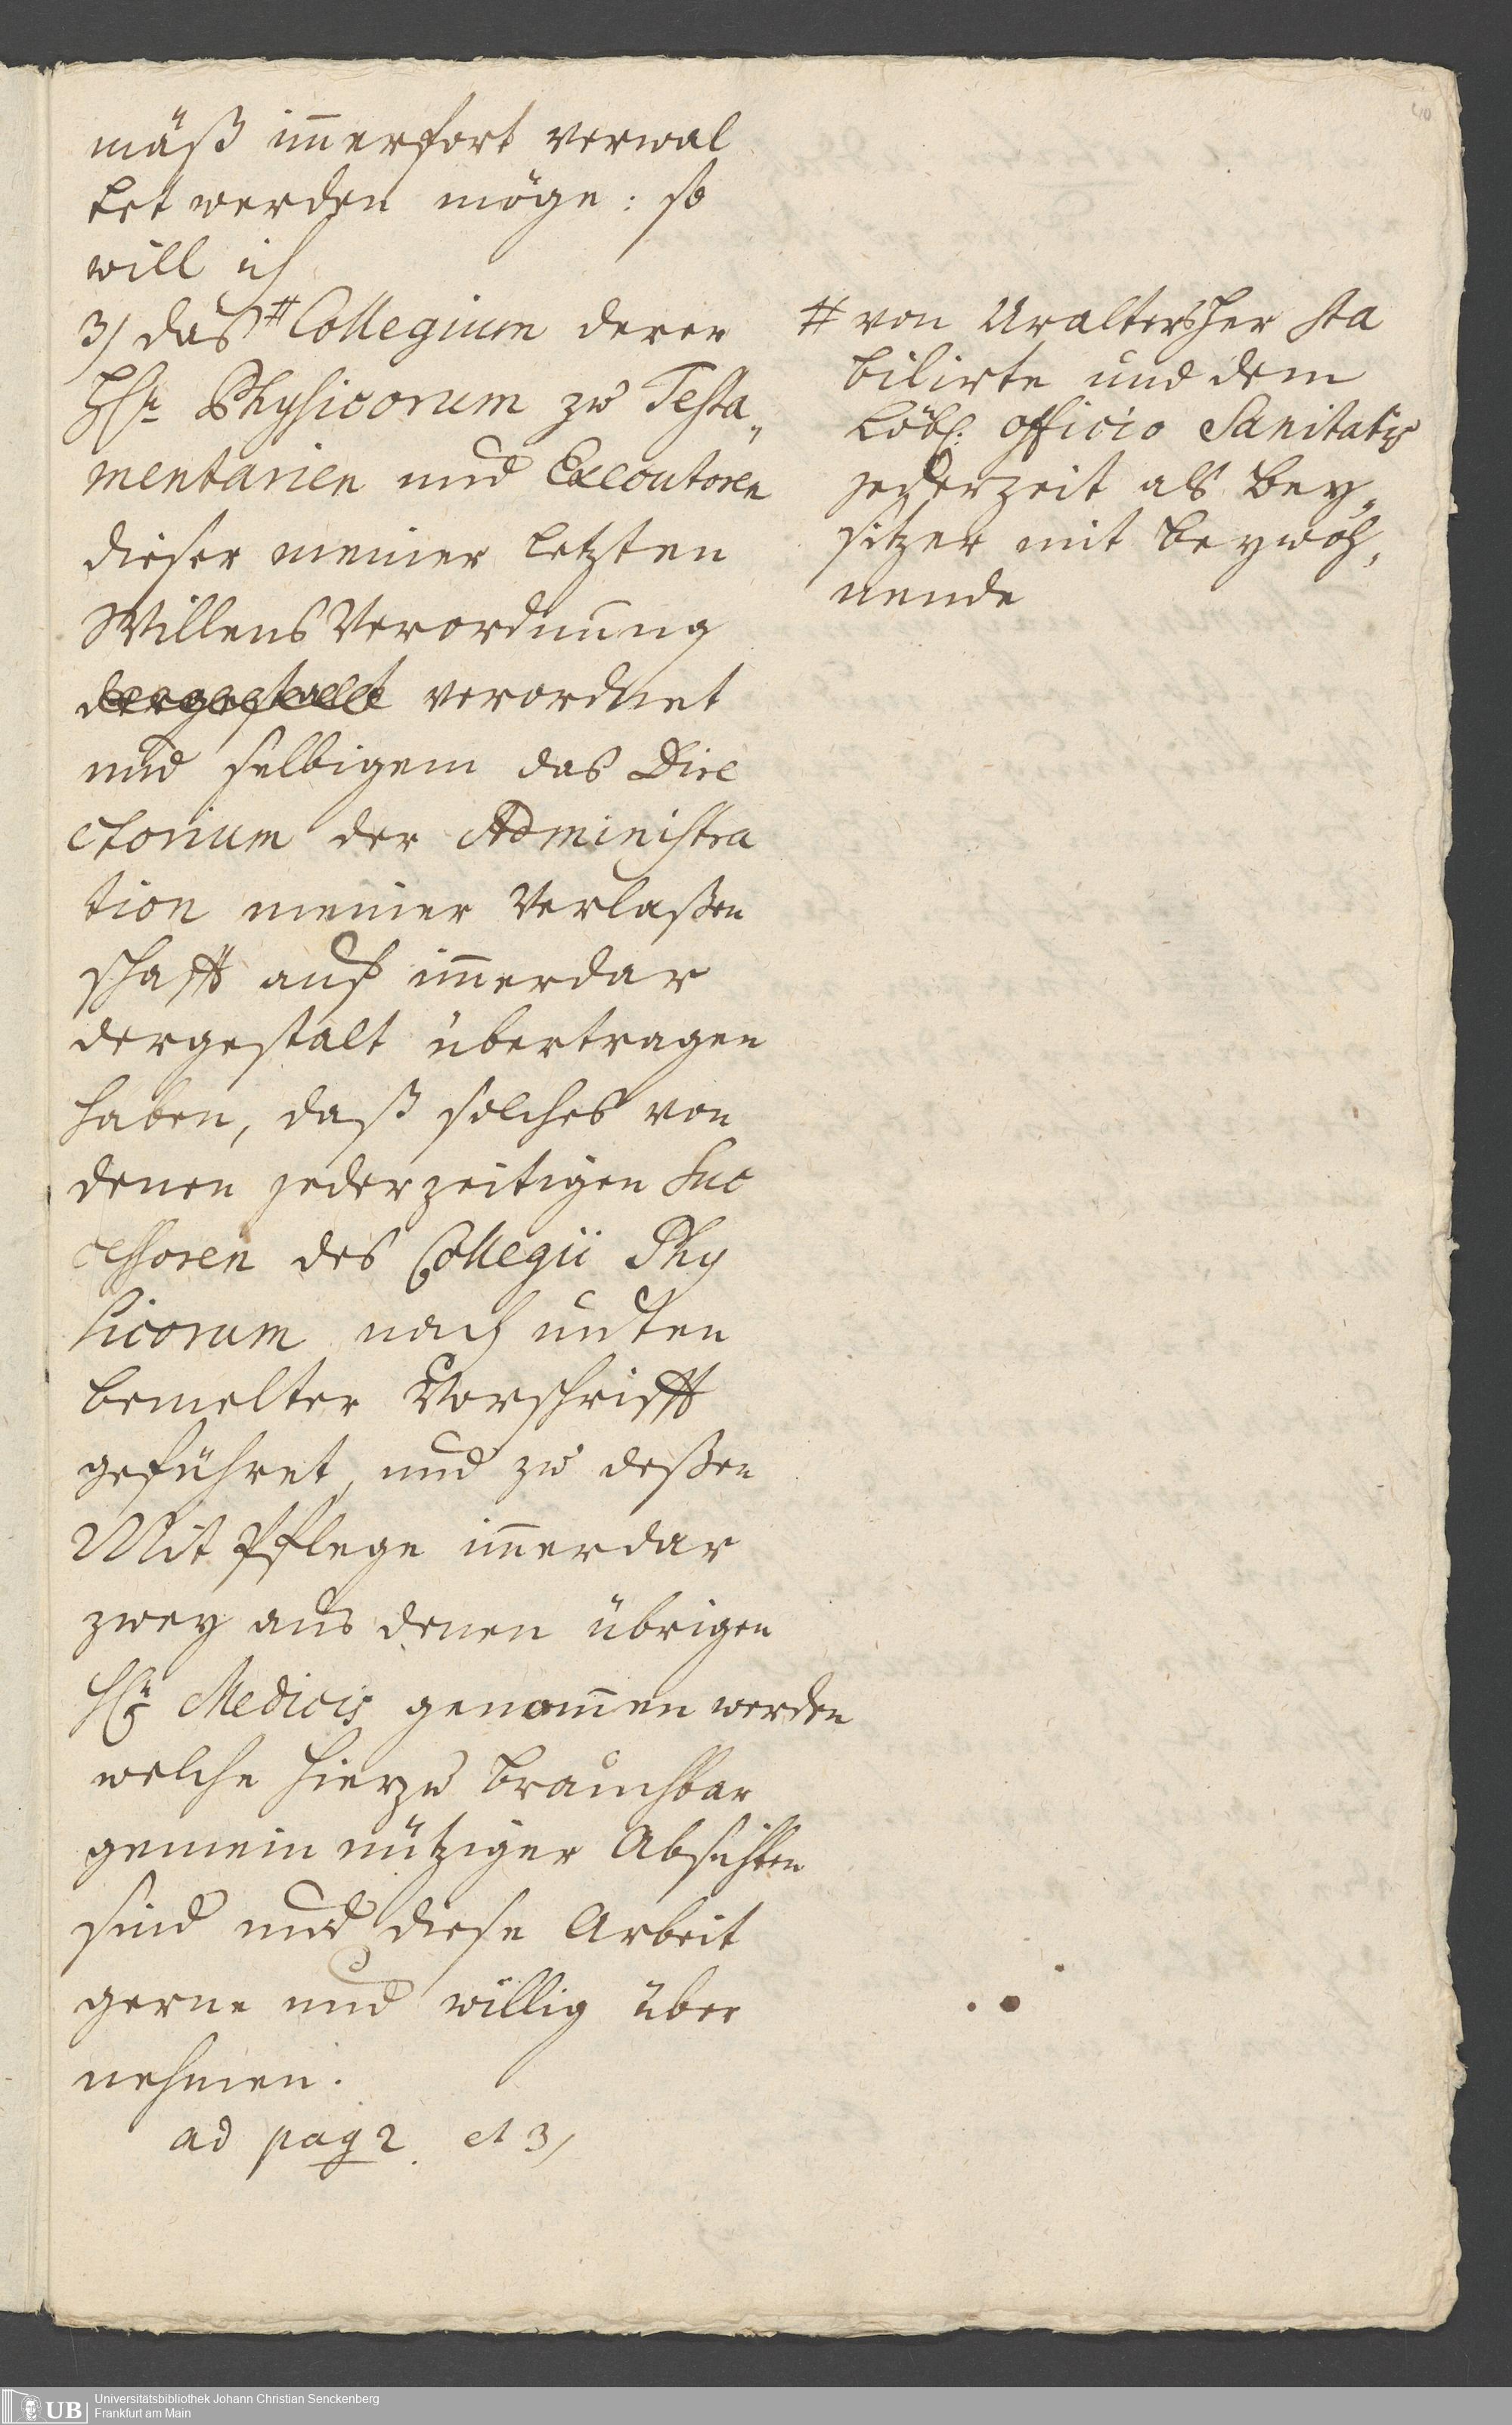 40
mäß im̄erfort verwal
tet werden möge: so
will ich
3) das # Collegium derer
HH. Physicorum zu Testa„
mentarien und Executoren
dieser meiner letzten
Willens Verordnung
dergestalt verordnet
und selbigem das Dire
ctorium der Administra
tion meiner Verlaßen
schafft auf im̄erdar
dergestalt übertragen
haben, daß solches von
denen jederzeitigen Suc
cessoren des Collegii Phy
sicorum nach unten
bemelter Vorschrifft
geführet, und zu deßen
Mit Pflege im̄erdar
zwey aus denen übrigen
Medicis genom̄en werden
welche hierzu brauchbar
gemein nütziger Absichten
sind und diese Arbeit
gerne und willig über
nehmen.
ad pag 2. et 3/
# von Uraltersher sta
bilirte und dem
Löbl. Officio Sanitatis
jederzeit als Bey„
sitzer mit beywoh„
nende
UB
Universitätsbibliothek Johann Christian Senckenberg
Frankfurt am Main